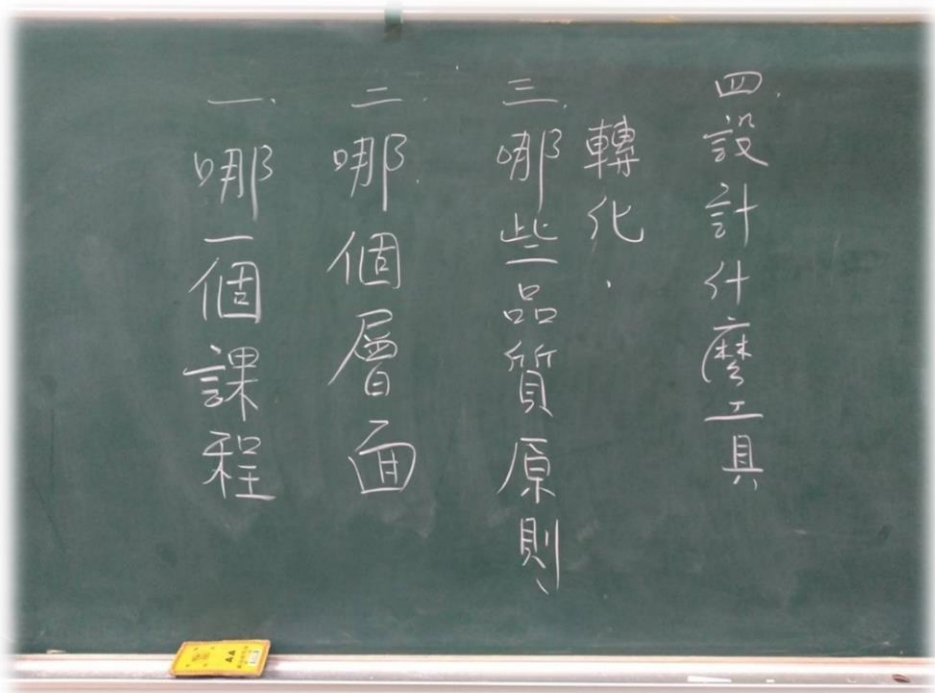 一.哪一個課程
二.哪個層面
三.哪些品質原則
轉化.
四.設計什麼工具